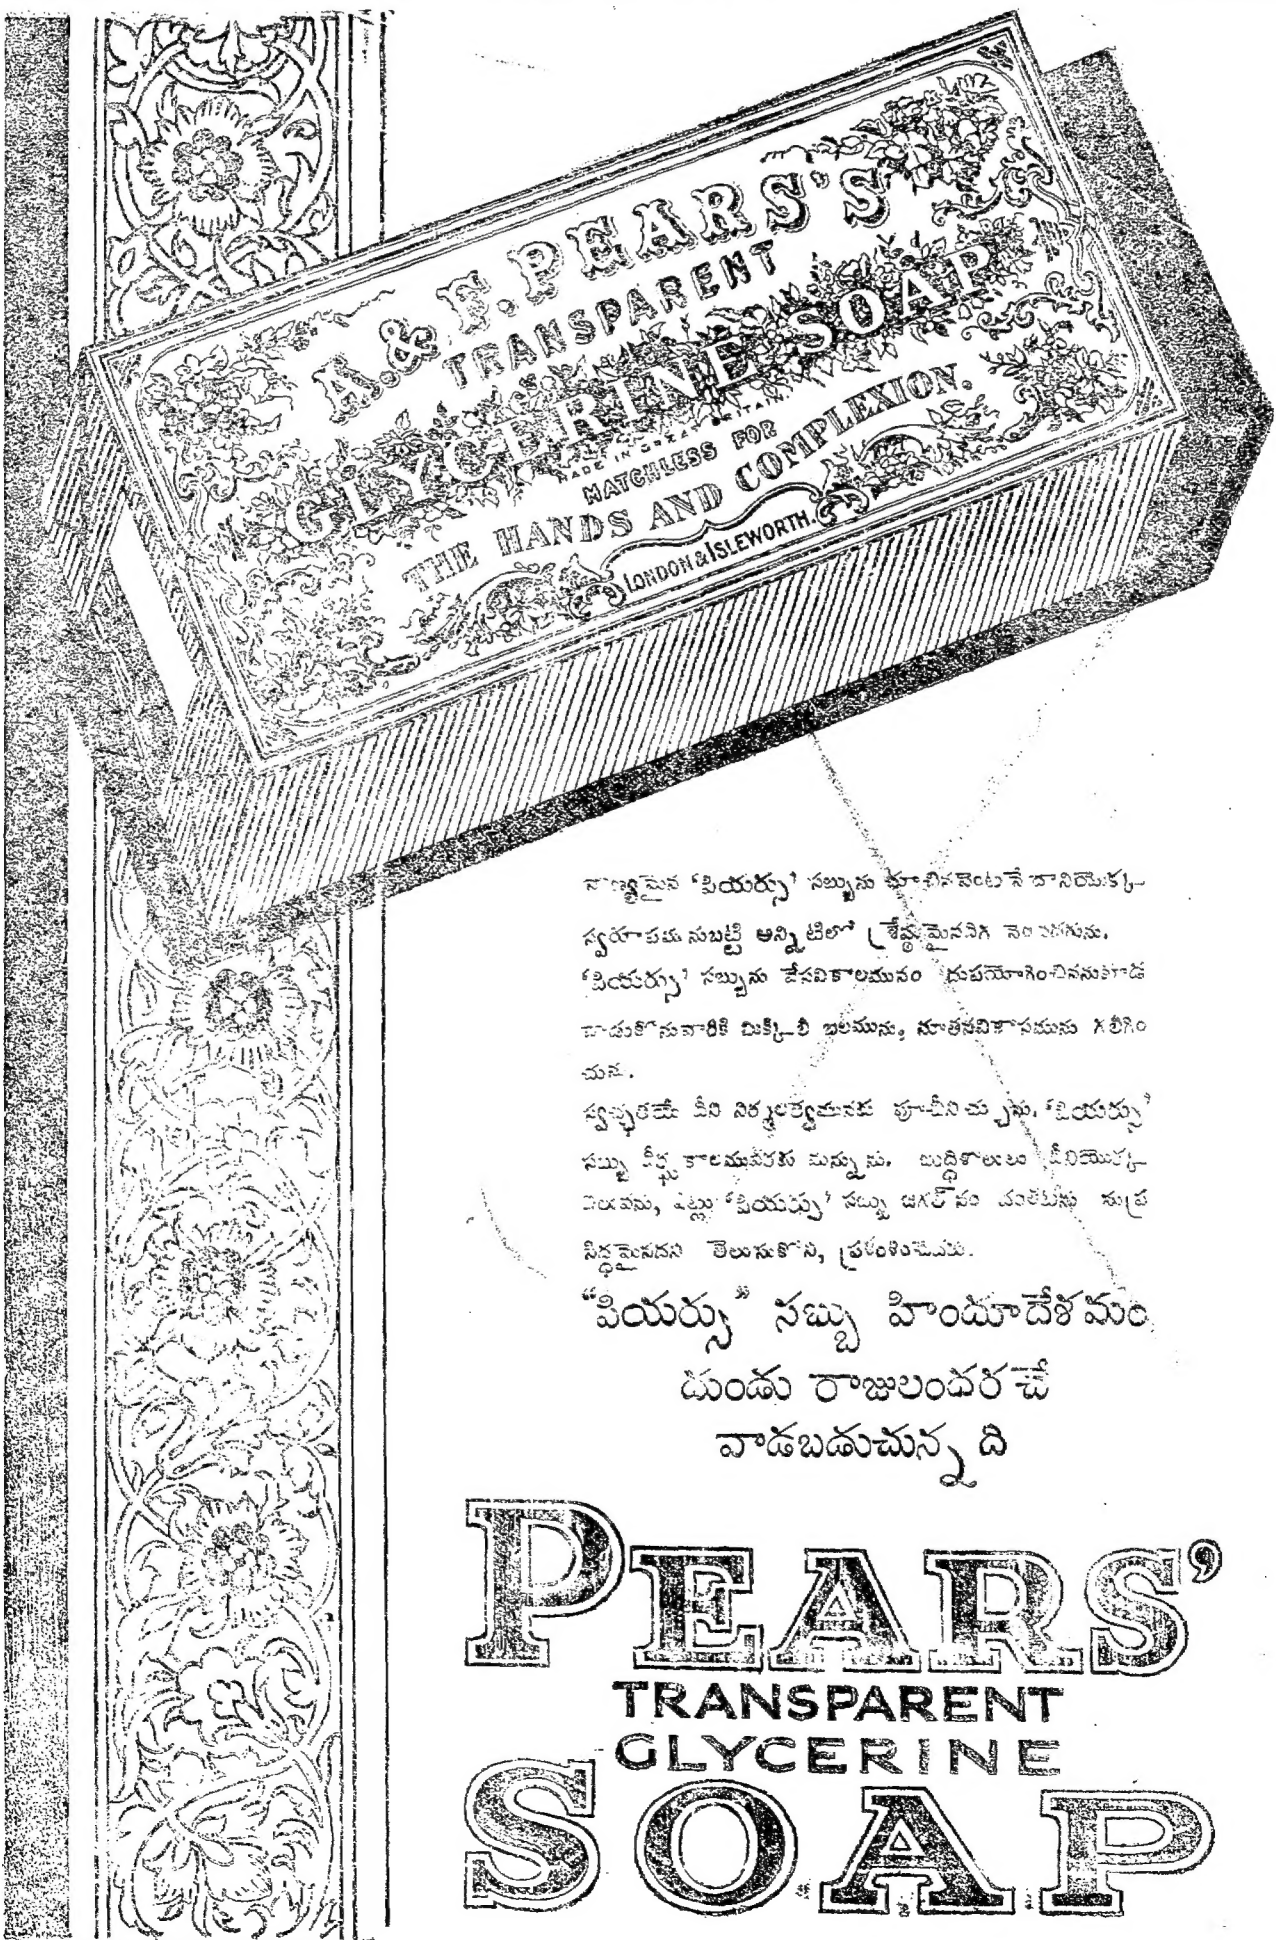 A. & F. PEARS'S
TRANSPARENT
GLYCERINE SOAP
MADE IN GREAT BRITAIN
MATCHLESS FOR
THE HANDS AND COMPLEXION.
LONDON & ISLEWORTH.
నాణ్యమైన ‘పియర్సు’ సబ్బును చూచినవెంటనే దానియొక్క
స్వరూపమునుబట్టి అన్నిటిలో శ్రేష్ఠమైనదిగ
‘పియర్సు’ సబ్బును వేసవికాలమునం దుపయోగించిననుకూడ
వాడుకొనువారికి మిక్కిలి బలమును, నూతనవికాసమును గలిగిం
చును.
స్వచ్ఛతయే దీని నిర్మలత్వమునకు పూచీనిచ్చును. ‘పియర్సు’
సబ్బు దీర్ఘకాలమువరకు మన్నును. బుద్ధిశాలులు దీనియొక్క
విలువను, ‘పియర్సు’ సబ్బు సుప్ర
సిద్ధమైనదని తెలుసుకొని,
“పియర్సు” సబ్బు హిందూదేశమం
దుండు రాజులందరిచే
వాడబడుచున్నది
PEARS'
TRANSPARENT
GLYCERINE
SOAP